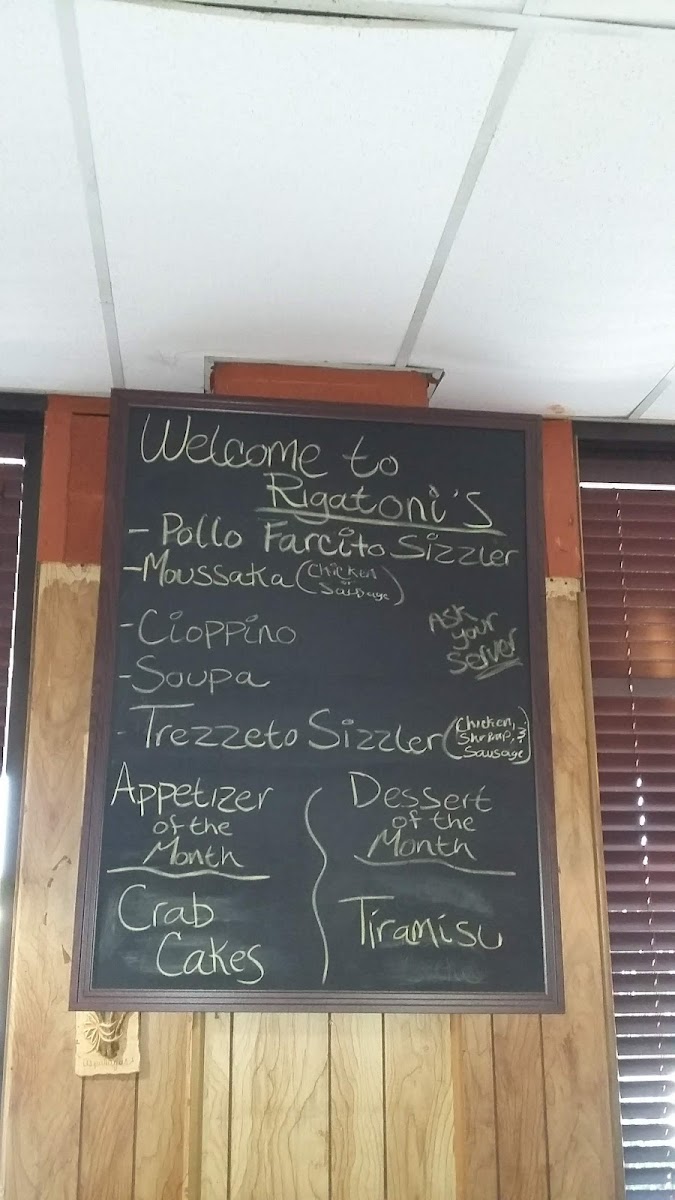 Welcome to
Rigatoni's
- Pollo Farcito Sizzler
- Moussaka (Chicken
or
Sausage)
- Cioppino
Ask
your
Server
- Soupa
- Trezzeto Sizzler (Chicken,
Shrimp, &
Sausage)
Appetizer
of the
Month
Crab
Cakes
Dessert
of the
Month
Tiramisu